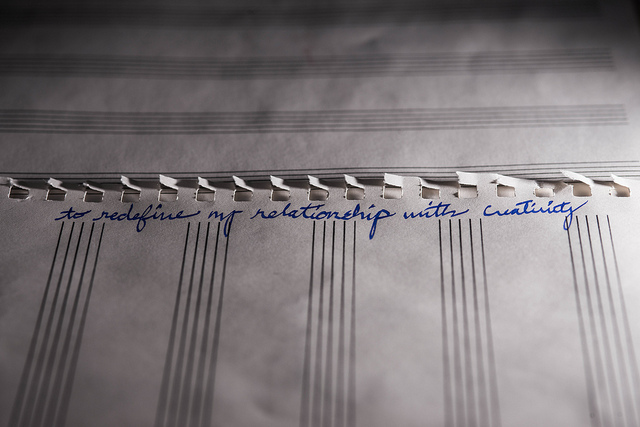 to redefine my relationship with creativity